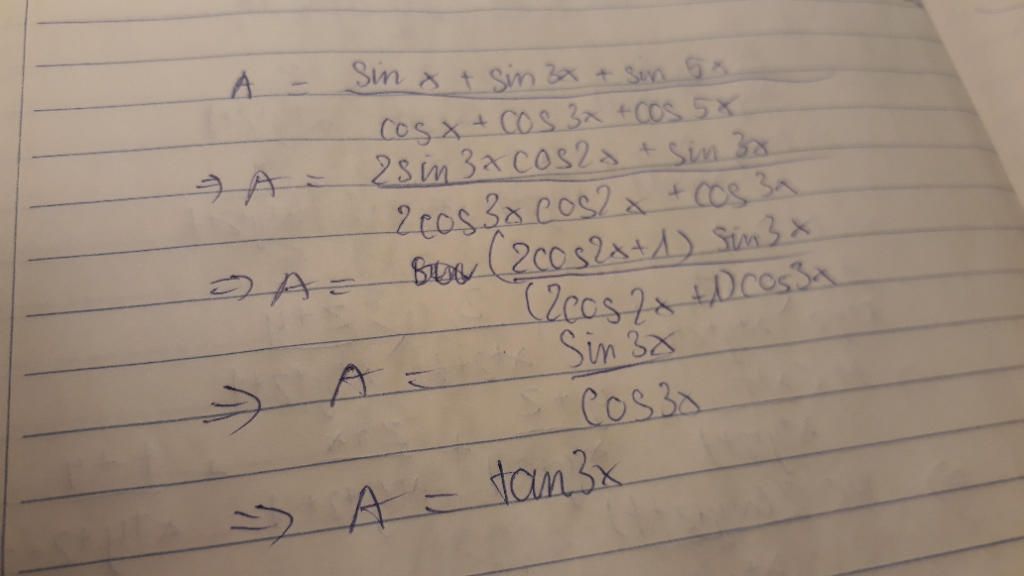 A = sin x + sin 3x + sin 5x
cos x + cos 3x + cos 5x
⇒ A = 2sin 3x cos2x + sin 3x
2cos 3x cos2x + cos 3x
⇒ A = (2cos2x+1) sin3x
(2cos2x +1)cos3x
⇒ A = sin 3x
cos3x
⇒ A = tan3x